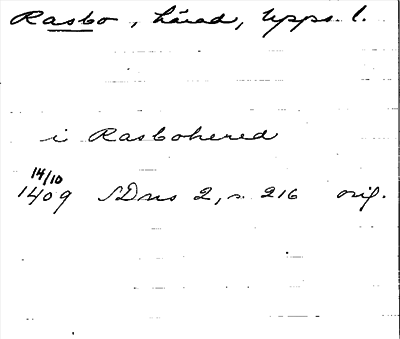 Rasbo, härad, Upps. l.
i Rasbohered
14/10
1409 SDns 2, s. 216 orig.